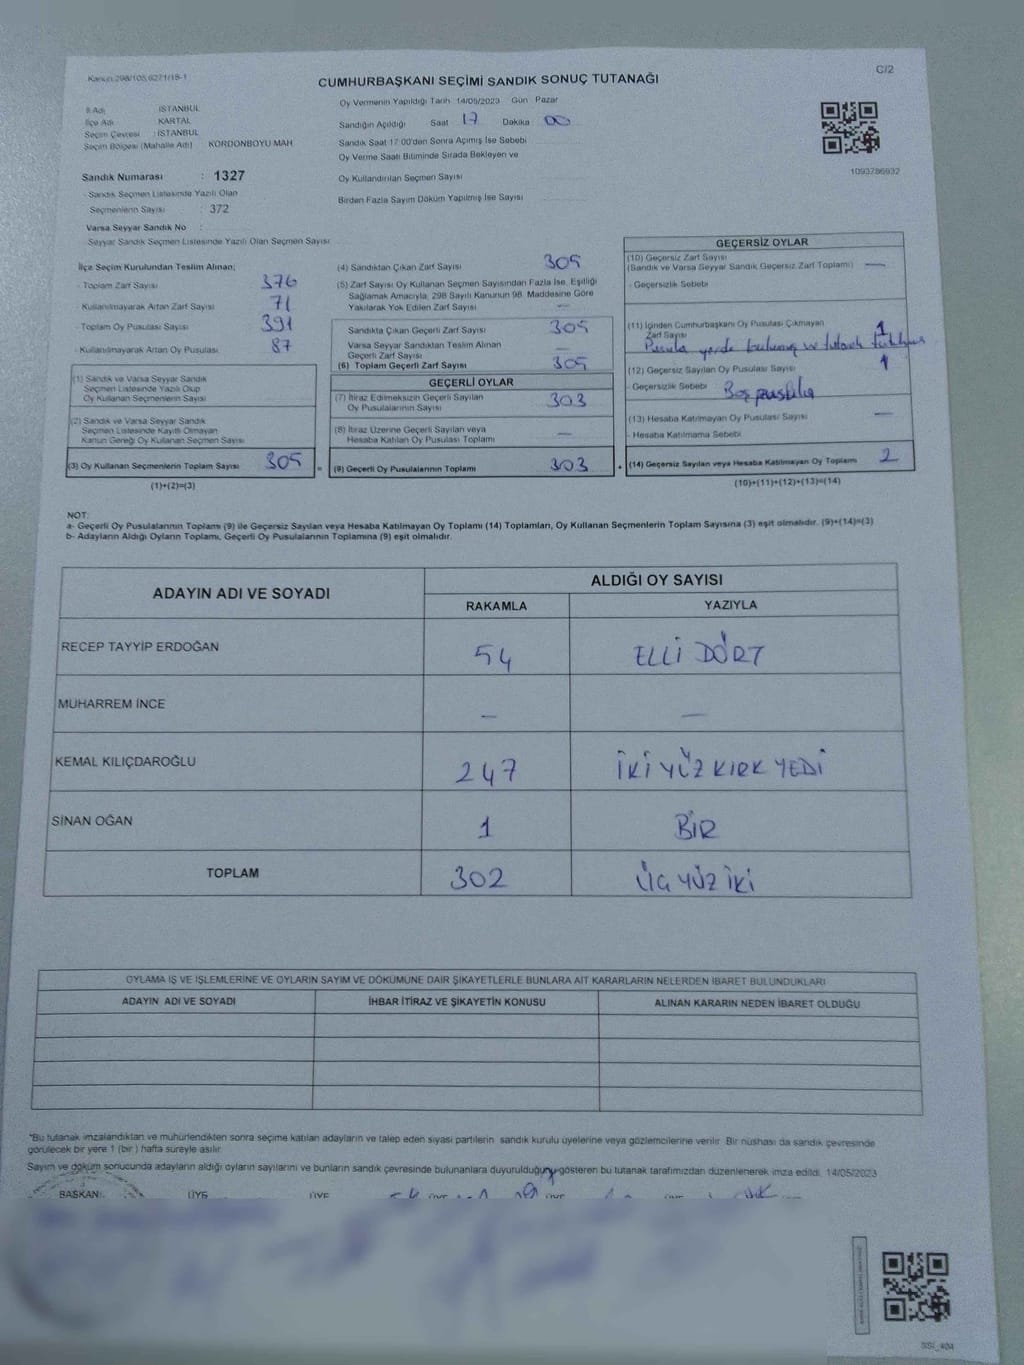 Kanun:298/105,6271/18-1
CUMHURBAŞKANI SEÇİMİ SANDIK SONUÇ TUTANAĞI
C/2
İl Adı : İSTANBUL
İlçe Adı : KARTAL
Seçim Çevresi : İSTANBUL
Seçim Bölgesi (Mahalle Adı) KORDONBOYU MAH
Sandık Numarası : 1327
Sandık Seçmen Listesinde Yazılı Olan
Seçmenlerin Sayısı : 372
Varsa Seyyar Sandık No :
Seyyar Sandık Seçmen Listesinde Yazılı Olan Seçmen Sayısı
Oy Vermenin Yapıldığı Tarih 14/05/2023 Gün Pazar
Sandığın Açıldığı Saat 17 Dakika 00
Sandık Saat 17:00'den Sonra Açımış İse Sebebi
Oy Verme Saati Bitiminde Sırada Bekleyen ve
Oy Kullandırılan Seçmen Sayısı
Birden Fazla Sayım Döküm Yapılmış İse Sayısı
1093786932
İlçe Seçim Kurulundan Teslim Alınan;
- Toplam Zarf Sayısı 376
- Kullanılmayarak Artan Zarf Sayısı 71
- Toplam Oy Pusulası Sayısı 391
- Kullanılmayarak Artan Oy Pusulası 87
(1) Sandık ve Varsa Seyyar Sandık
Seçmen Listesinde Yazılı Olup
Oy Kullanan Seçmenlerin Sayısı
(2) Sandık ve Varsa Seyyar Sandık
Seçmen Listesinde Kayıtlı Olmayan
Kanun Gereği Oy Kullanan Seçmen Sayısı
(3) Oy Kullanan Seçmenlerin Toplam Sayısı 305 =
(1)+(2)=(3)
(4) Sandıktan Çıkan Zarf Sayısı 305
(5) Zarf Sayısı Oy Kullanan Seçmen Sayısından Fazla İse, Eşitliği
Sağlamak Amacıyla, 298 Sayılı Kanunun 98. Maddesine Göre
Yakılarak Yok Edilen Zarf Sayısı —
Sandıkta Çıkan Geçerli Zarf Sayısı 305
Varsa Seyyar Sandıktan Teslim Alınan
Geçerli Zarf Sayısı —
(6) Toplam Geçerli Zarf Sayısı 305
GEÇERLİ OYLAR
(7) İtiraz Edilmeksizin Geçerli Sayılan
Oy Pusulalarının Sayısı 303
(8) İtiraz Üzerine Geçerli Sayılan veya
Hesaba Katılan Oy Pusulası Toplamı —
(9) Geçerli Oy Pusulalarının Toplamı 303 +
GEÇERSİZ OYLAR
(10) Geçersiz Zarf Sayısı
(Sandık ve Varsa Seyyar Sandık Geçersiz Zarf Toplamı) —
- Geçersizlik Sebebi
(11) İçinden Cumhurbaşkanı Oy Pusulası Çıkmayan
Zarf Sayısı 1
Pusula yerde bulunmuş ve tutanak tutulmuş
(12) Geçersiz Sayılan Oy Pusulası Sayısı 1
- Geçersizlik Sebebi Boş pusula
(13) Hesaba Katılmayan Oy Pusulası Sayısı —
- Hesaba Katılmama Sebebi
(14) Geçersiz Sayılan veya Hesaba Katılmayan Oy Toplamı 2
(10)+(11)+(12)+(13)=(14)
NOT:
a- Geçerli Oy Pusulalarının Toplamı (9) ile Geçersiz Sayılan veya Hesaba Katılmayan Oy Toplamı (14) Toplamları, Oy Kullanan Seçmenlerin Toplam Sayısına (3) eşit olmalıdır. (9)+(14)=(3)
b- Adayların Aldığı Oyların Toplamı, Geçerli Oy Pusulalarının Toplamına (9) eşit olmalıdır.
ADAYIN ADI VE SOYADI
ALDIĞI OY SAYISI
RAKAMLA YAZIYLA
RECEP TAYYİP ERDOĞAN 54 ELLİ DÖRT
MUHARREM İNCE — —
KEMAL KILIÇDAROĞLU 247 İKİ YÜZ KIRK YEDİ
SİNAN OĞAN 1 BİR
TOPLAM 302 ÜÇ YÜZ İKİ
OYLAMA İŞ VE İŞLEMLERİNE VE OYLARIN SAYIM VE DÖKÜMÜNE DAİR ŞİKAYETLERLE BUNLARA AİT KARARLARIN NELERDEN İBARET BULUNDUKLARI
ADAYIN ADI VE SOYADI İHBAR İTİRAZ VE ŞİKAYETİN KONUSU ALINAN KARARIN NEDEN İBARET OLDUĞU
*Bu tutanak imzalandıktan ve mühürlendikten sonra seçime katılan adayların ve talep eden siyasi partilerin sandık kurulu üyelerine veya gözlemcilerine verilir. Bir nüshası da sandık çevresinde
görülecek bir yere 1 (bir) hafta süreyle asılır.
Sayım ve döküm sonucunda adayların aldığı oyların sayılarını ve bunların sandık çevresinde bulunanlara duyurulduğunu gösteren bu tutanak tarafımızdan düzenlenerek imza edildi. 14/05/2023
BAŞKAN ÜYE ÜYE ÜYE ÜYE ÜYE
SSI_404